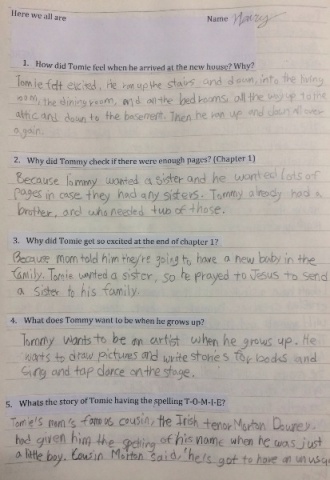 Here we all are
Name Mary
1. How did Tomie feel when he arrived at the new house? Why?
Tomie felt excited. He ran up the stairs and down, into the living
room, the dining room, and all the bedrooms, all the way up to the
attic and down to the basement. Then he ran up and down all over
again.
2. Why did Tommy check if there were enough pages? (Chapter 1)
Because Tommy wanted a sister and he wanted lots of
pages in case they had any sisters. Tommy already had a
brother, and who needed two of those.
3. Why did Tomie get so excited at the end of chapter 1?
Because mom told him they're going to, have a new baby in the
family. Tomie wanted a sister, so he prayed to Jesus to send
a sister to his family.
4. What does Tommy want to be when he grows up?
Tommy wants to be an artist when he grows up. He
wants to draw pictures and write stories for books and
sing and tap dance on the stage.
5. Whats the story of Tomie having the spelling T-O-M-I-E?
Tomie's mom's famous cousin, the Irish tenor Morton Downey,
had given him the spelling of his name when he was just
a little boy. Cousin Morton said, "he's got to have an unusu